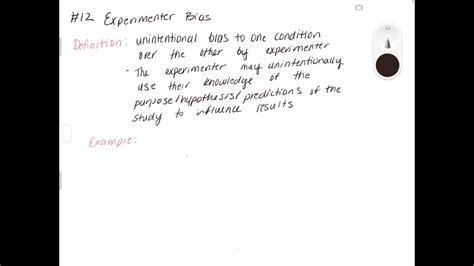 #12 Experimenter Bias
Definition: unintentional bias to one condition
over the other by experimenter
- The experimenter may unintentionally
use their knowledge of the
purpose/hypothesis/predictions of the
study to influence results
Example: